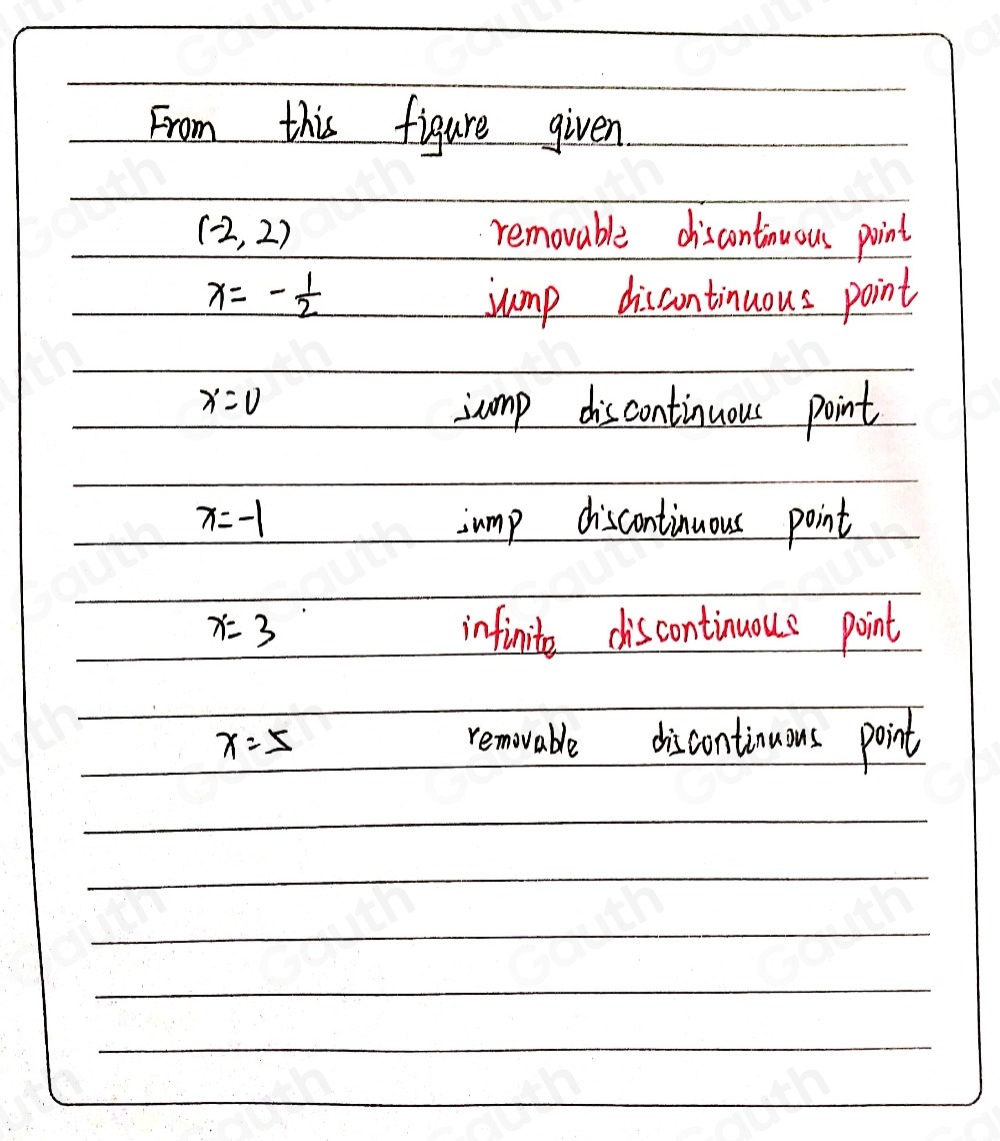 From this figure given.
(-2, 2) removable discontinuous point
x = - 1/2 jump discontinuous point
x=0 jump discontinuous point
x=-1 jump discontinuous point
x= 3 infinite discontinuous point
x=5 removable discontinuous point